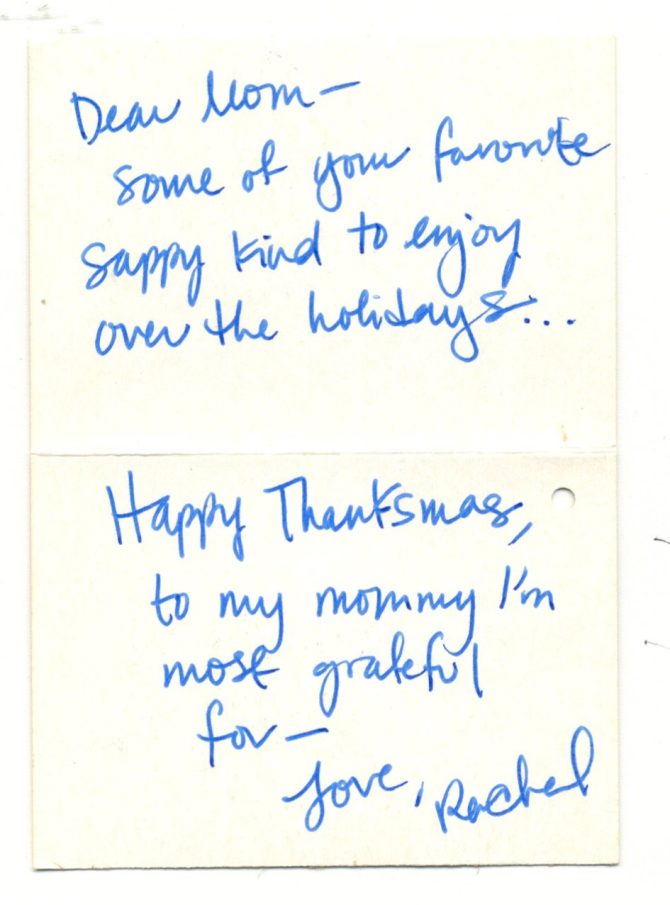 Dear Mom—
some of your favorite
sappy kind to enjoy
over the holidays...
Happy Thanksmas,
to my mommy I'm
most grateful
for—
Love, Rachel